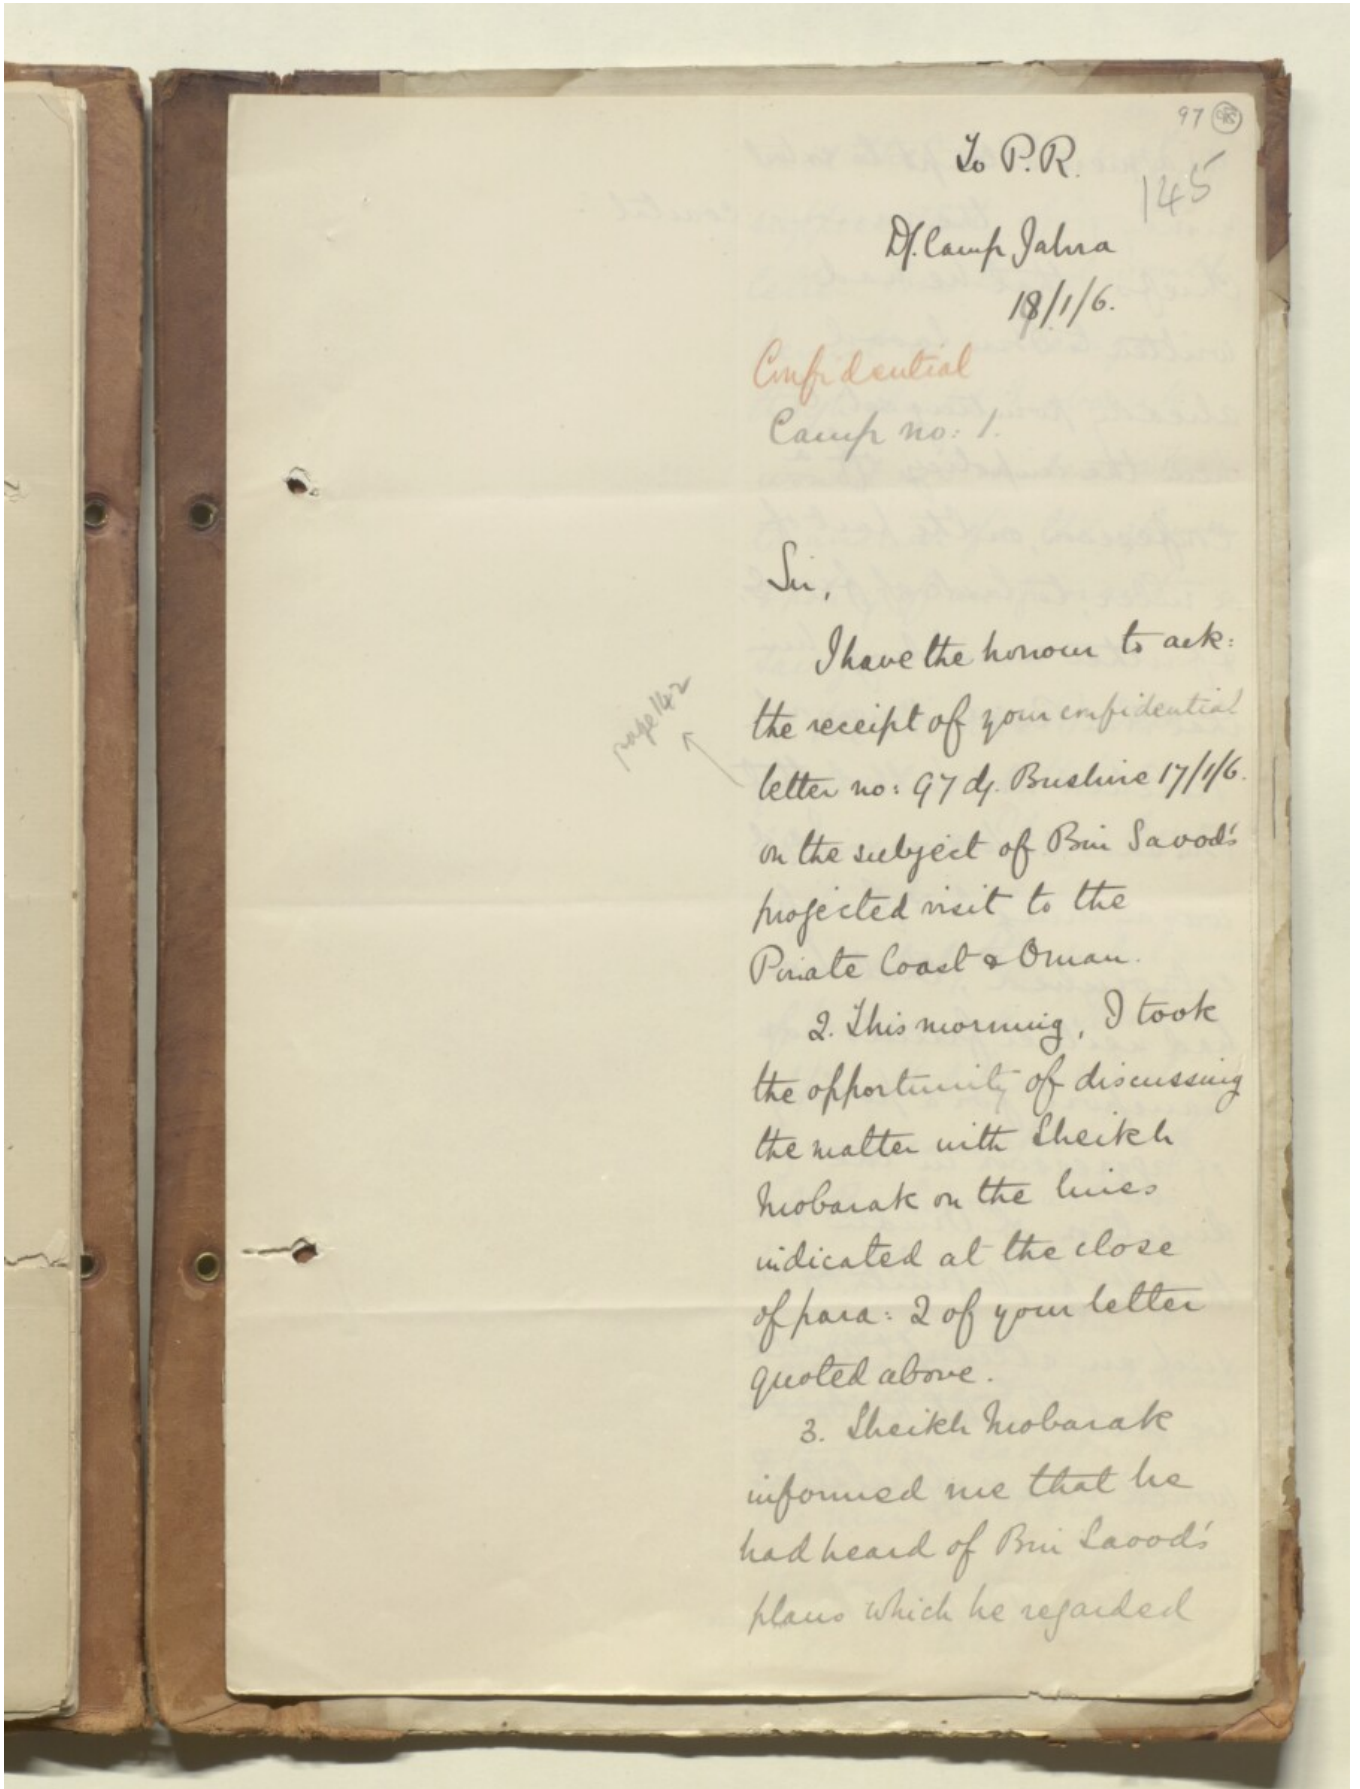 97
To P.R.
145
Df. Camp Jahra
18/1/6.
Confidential
Camp no: 1.
Sir,
I have the honour to ack:
the receipt of your confidential
page 142
letter no: 97 df. Bushire 17/1/6.
on the subject of Bin Saood's
projected visit to the
Pirate Coast & Oman.
2. This morning, I took
the opportunity of discussing
the matter with Sheikh
Mobarak on the lines
indicated at the close
of para: 2 of your letter
quoted above.
3. Sheikh Mobarak
informed me that he
had heard of Bin Saood's
plans which he regarded